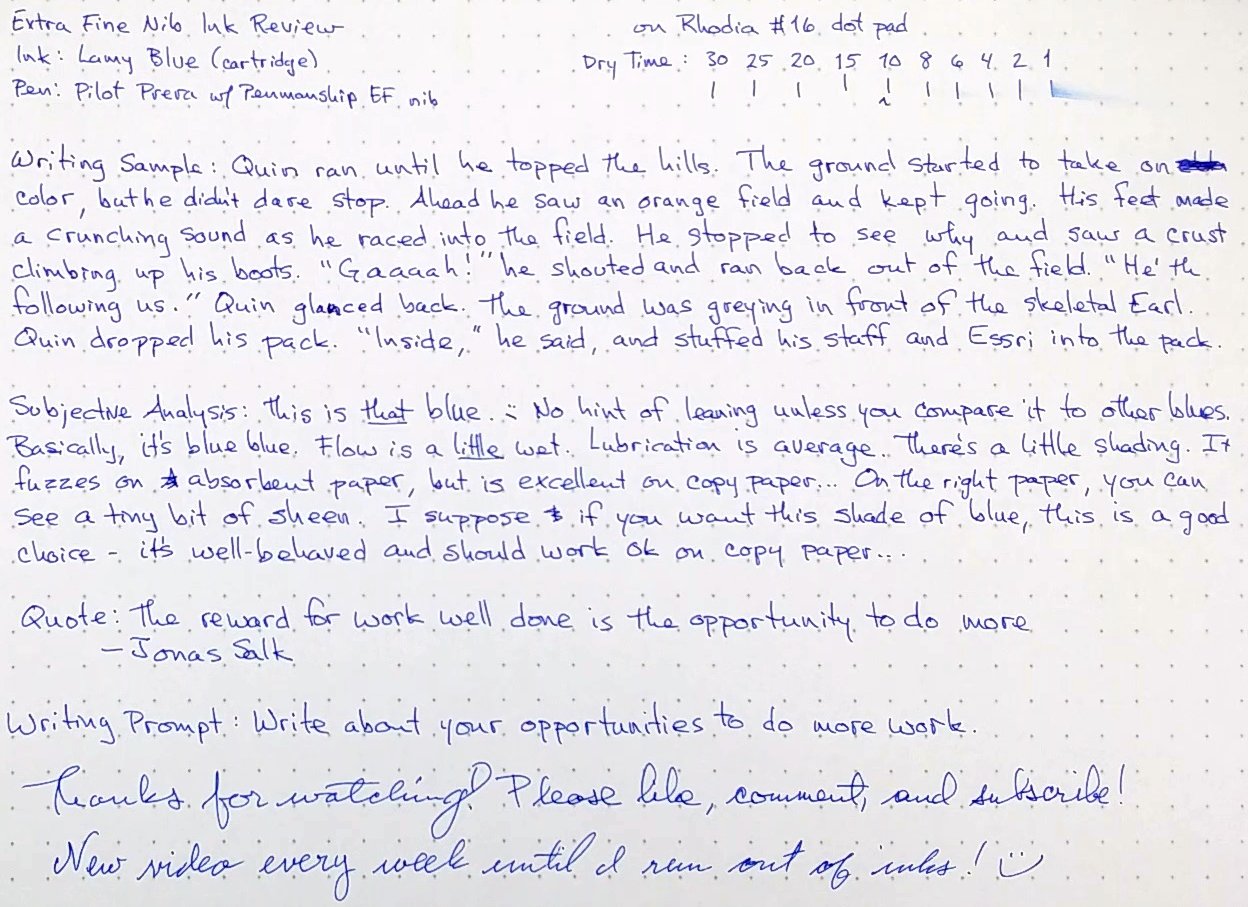 Extra Fine Nib Ink Review
on Rhodia #16 dot pad
Ink: Lamy Blue (cartridge)
Dry Time: 30 25 20 15 10 8 6 4 2 1
Pen: Pilot Prera w/ Penmanship EF nib
Writing Sample: Quin ran until he topped the hills. The ground started to take on
color, but he didn't dare stop. Ahead he saw an orange field and kept going. His feet made
a crunching sound as he raced into the field. He stopped to see why and saw a crust
climbing up his boots. "Gaaaah!" he shouted and ran back out of the field. "He'th
following us." Quin glanced back. The ground was greying in front of the skeletal Earl.
Quin dropped his pack. "Inside," he said, and stuffed his staff and Essri into the pack.
Subjective Analysis: This is that blue. No hint of leaning unless you compare it to other blues.
Basically, it's blue blue. Flow is a little wet. Lubrication is average. There's a little shading. It
fuzzes on absorbent paper, but is excellent on copy paper... On the right paper, you can
see a tiny bit of sheen. I suppose if you want this shade of blue, this is a good
choice - it's well-behaved and should work ok on copy paper...
Quote: The reward for work well done is the opportunity to do more
- Jonas Salk
Writing Prompt: Write about your opportunities to do more work.
Thanks for watching! Please like, comment, and subscribe!
New video every week until I run out of inks! :)